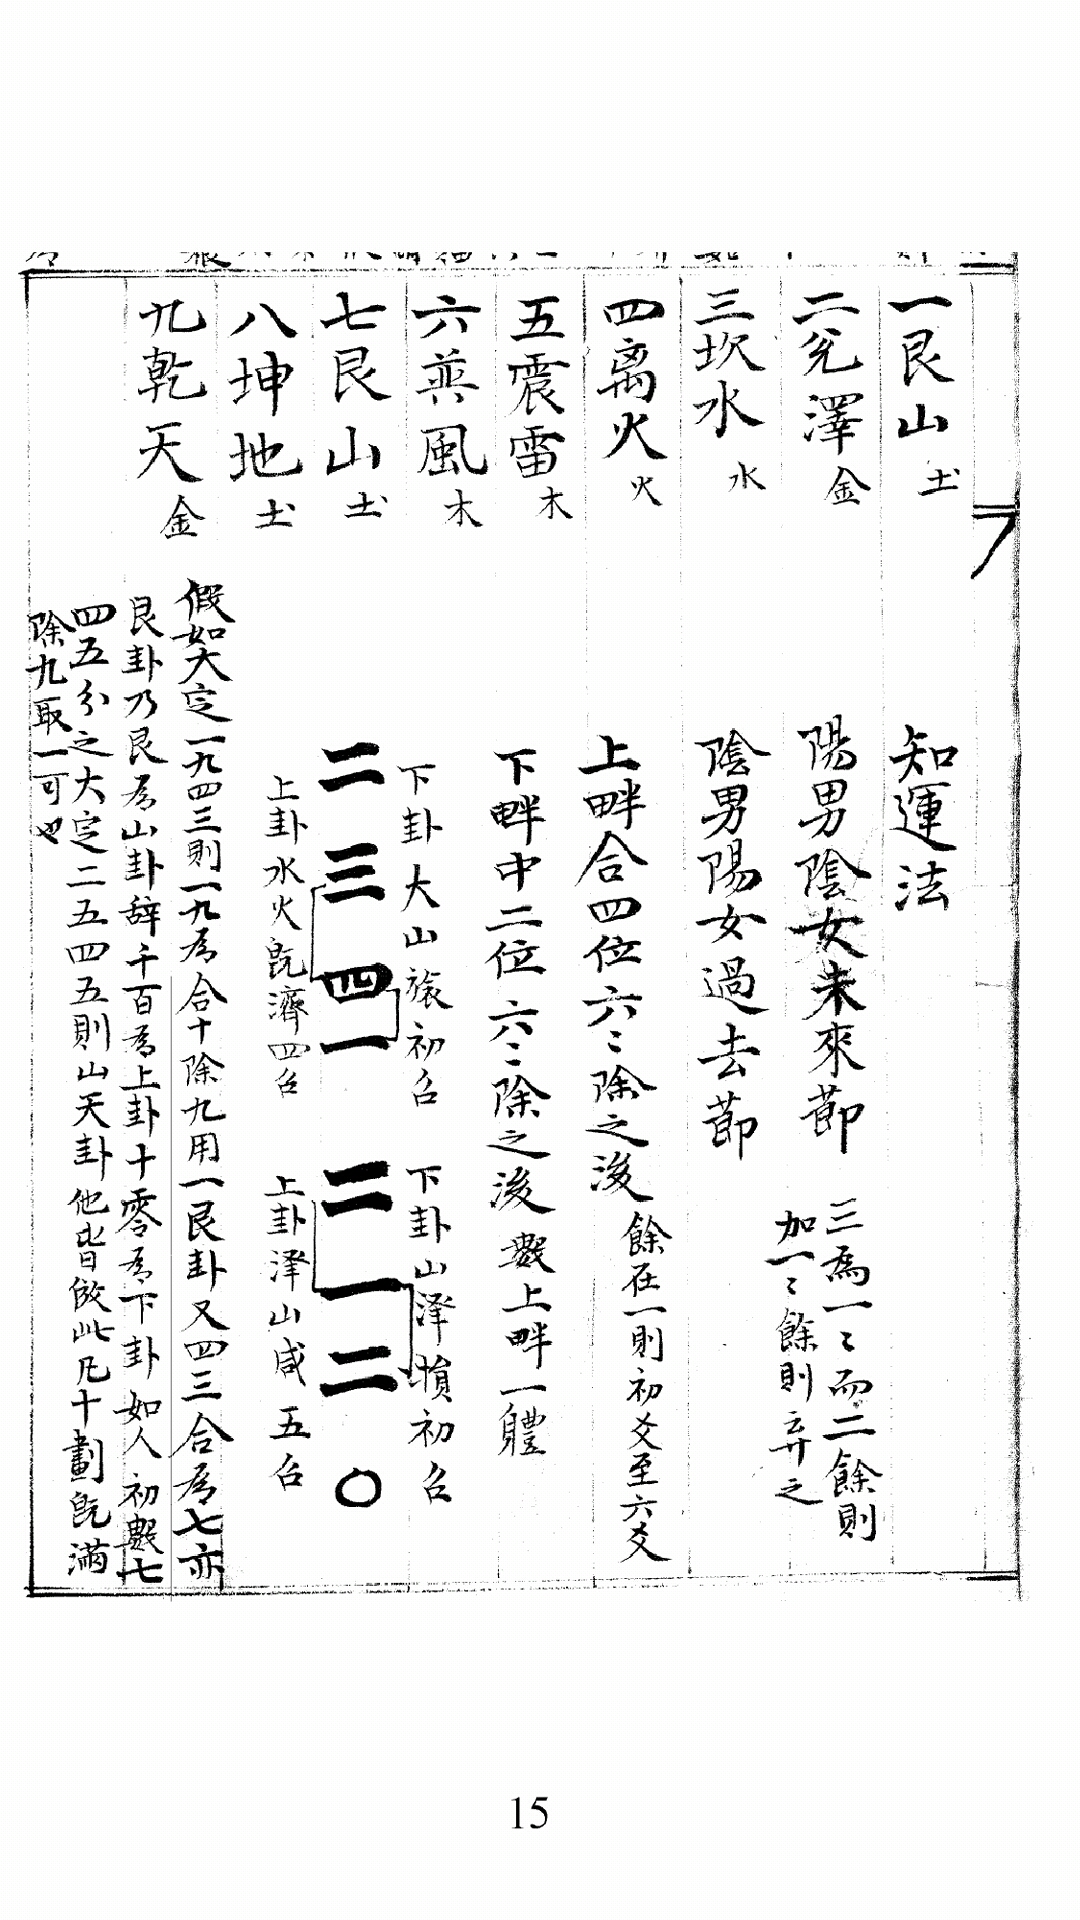 一艮山 土
二兊澤 金
三坎水 水
四离火 火
五震雷 木
六巽風 木
七艮山 土
八坤地 土
九乾天 金
知運法
陽男陰女未來節 三為一〻而二餘則加一〻餘則弃之
陰男陽女過去節
上畔合四位六〻除之後 餘在一則初爻至六爻
下畔中二位六〻除之後 數上畔一體
下卦火山旅初爻 下卦山泽損初爻
二三四一 二一二〇
上卦水火旣濟四爻 上卦泽山咸五爻
假如大定一九四三則一九為合十除九用一艮卦又四三合為七亦
艮卦乃艮為山卦辞千百為上卦十零為下卦如人初數七
四五分之大定二五四五則山天卦他皆倣此凡十劃旣滿
除九取一可也
15